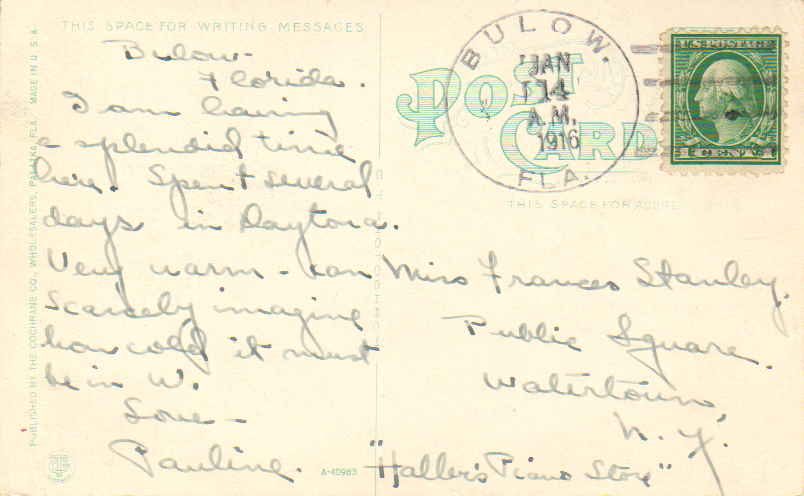 THIS SPACE FOR WRITING MESSAGES
Bulow-
Florida.
I am having
a splendid time
here. Spent several
days in Daytona.
Very warm - can
scarcely imagine
how cold it must
be in W.
Love-
Pauline.
PUBLISHED BY THE COCHRANE CO., WHOLESALERS, PALATKA, FLA. MADE IN U.S.A.
A-40983
POST CARD
BULOW.
JAN
14
A.M.
1916
FLA.
U.S. POSTAGE
THIS SPACE FOR
Miss Frances Stanley.
Public Square.
Watertown,
N. Y.
"Haller's Piano Store"